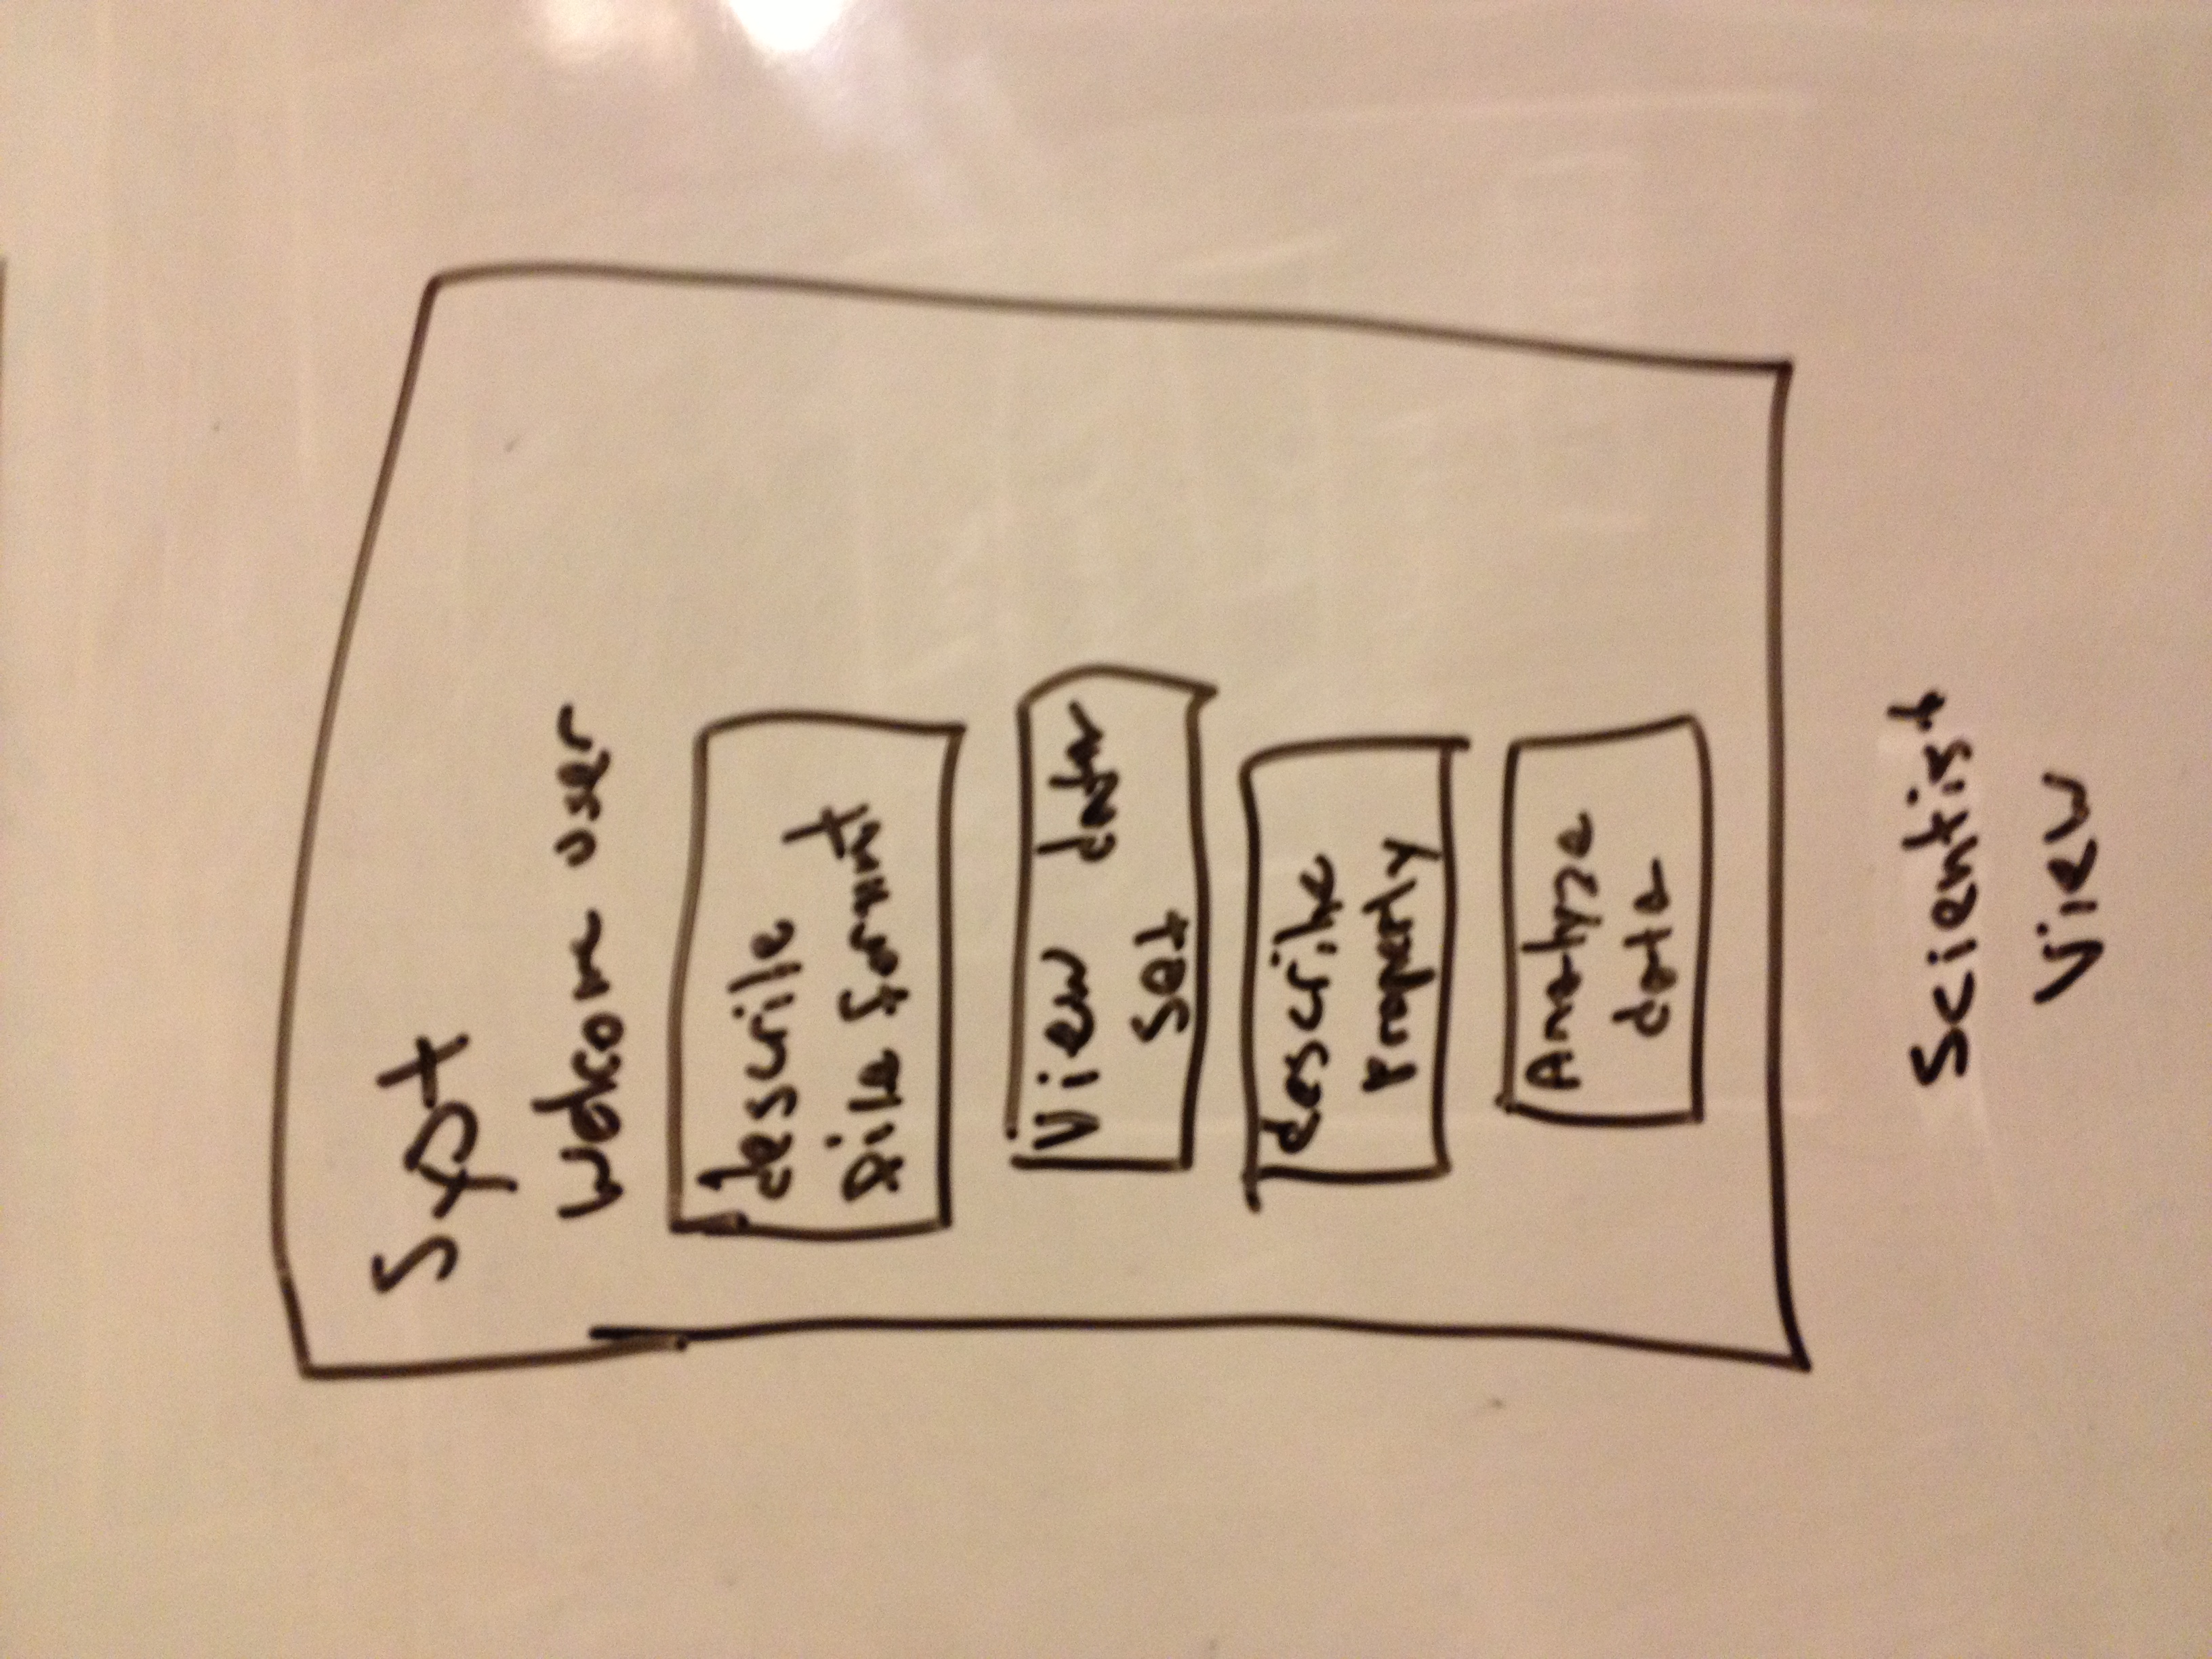 Syst
Welcome user
describe
file format
View data
set
describe
Property
Analyze
data
Scientist
View